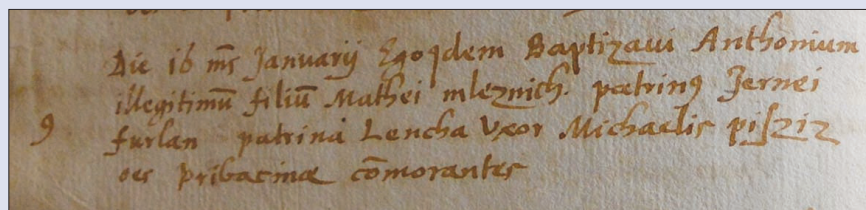 Die 16 m̄s Januarij Ego qdem Baptizaui Anthonium
illegitimū filiū Mathei mleznich. patrinꝯ Jernei
9 furlan patrina Lencha Vxor Michaelis piſziz
oēs pribacinæ cōmorantes